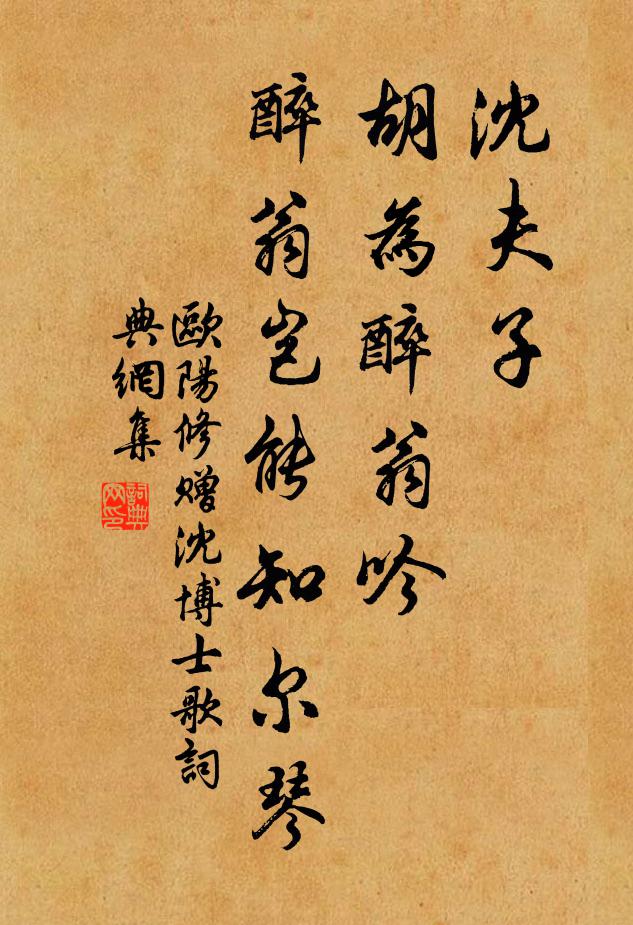 沈夫子
胡為醉翁吟
醉翁豈能知尔琴
歐陽修贈沈博士歌詞
典網集
詞典
网印